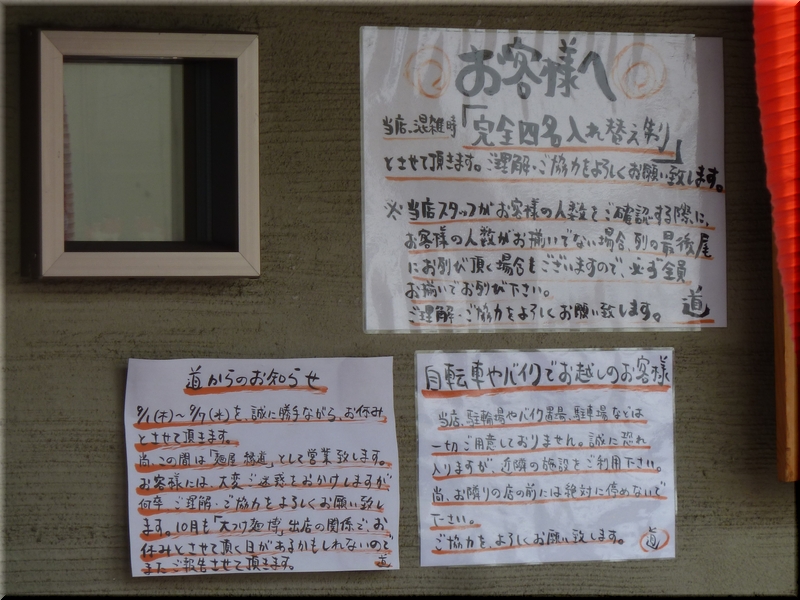 お客様へ
当店、混雑時「完全四名入れ替え制」
とさせて頂きます。ご理解・ご協力をよろしくお願い致します。
※当店スタッフがお客様の人数をご確認する際に、
お客様の人数がお揃いでない場合、列の最後尾
にお列び頂く場合もございますので、必ず全員
お揃いでお列び下さい。
ご理解・ご協力をよろしくお願い致します。 道
道からのお知らせ
9/1(木)～9/7(水)を、誠に勝手ながら、お休み
とさせて頂きます。
尚、この間は「麺屋 極道」として営業致します。
お客様には、大変ご迷惑をおかけしますが
何卒ご理解・ご協力をよろしくお願い致し
ます。10月も「大つけ麺博」出店の関係で、お
休みとさせて頂く日があるかもしれないので
またご報告させて頂きます。 道
自転車やバイクでお越しのお客様
当店、駐輪場やバイク置場、駐車場などは
一切ご用意しておりません。誠に恐れ
入りますが、近隣の施設をご利用下さい。
尚、お隣りの店の前には絶対に停めないで
下さい。
ご協力を、よろしくお願い致します。 道